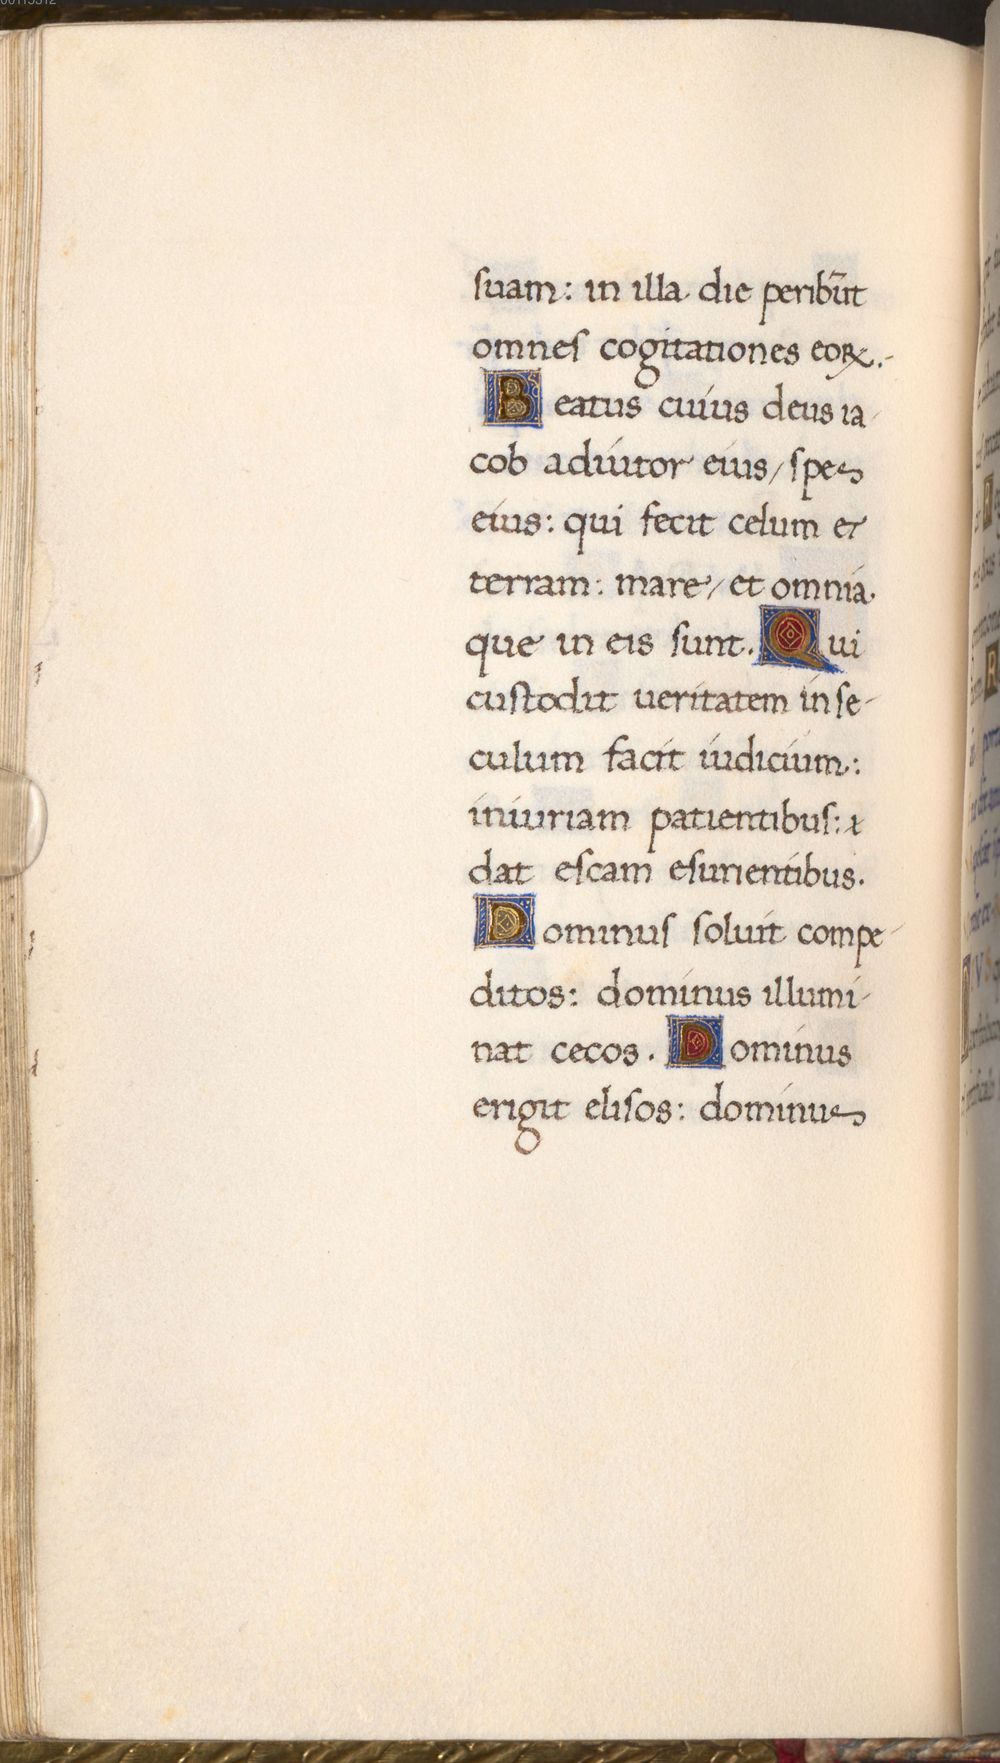 suam: in illa die peribūt
omnes cogitationes eoꝝ.-
Beatus cuius deus ia
cob adiutor eius / spes
eius: qui fecit celum et
terram: mare / et omnia
que in eis sunt. Qui
custodit ueritatem in se-
culum facit iudicium:
iniuriam patientibus: ⁊
dat escam esurientibus.
Dominus soluit compe-
ditos: dominus illumi-
nat cecos. Dominus
erigit elisos: dominus